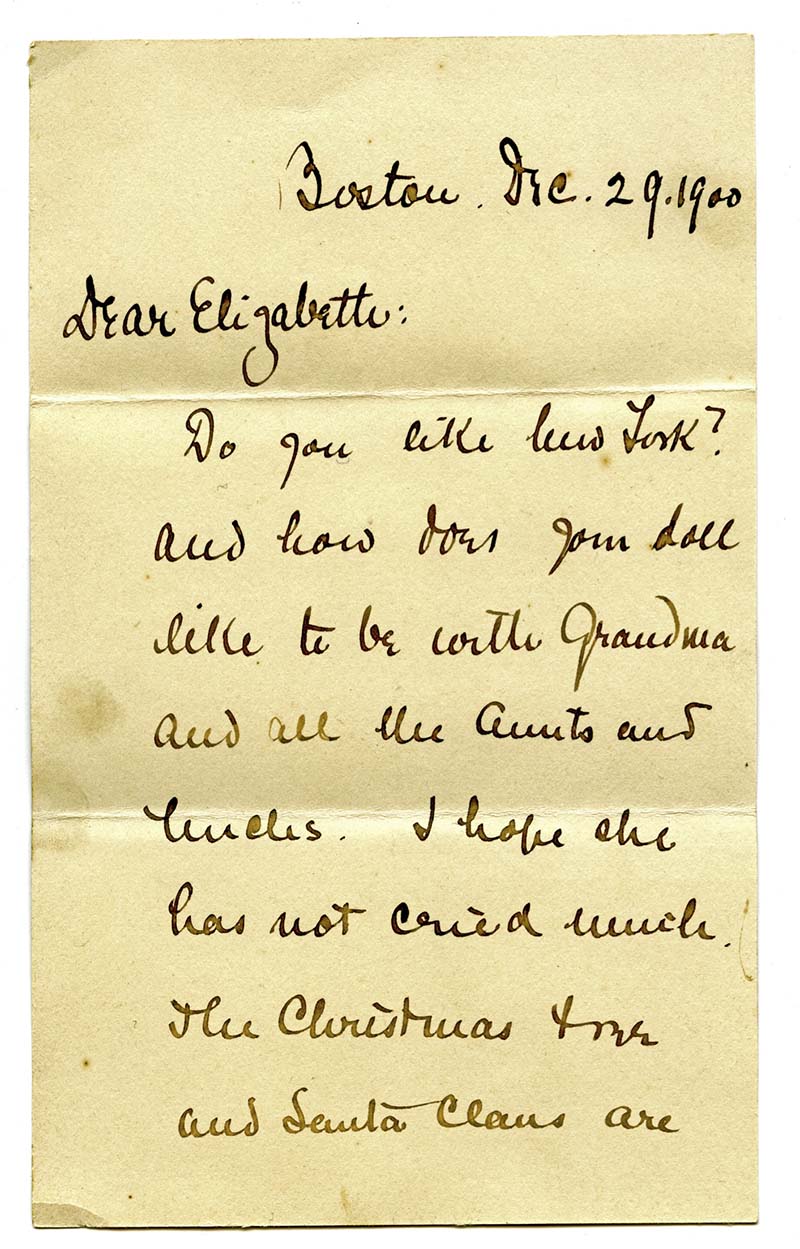 Boston. Dec. 29. 1900
Dear Elizabeth:
Do you like New York?
And how does your doll
like to be with Grandma
and all the Aunts and
Uncles. I hope she
has not cried much.
The Christmas tree
and Santa Claus are